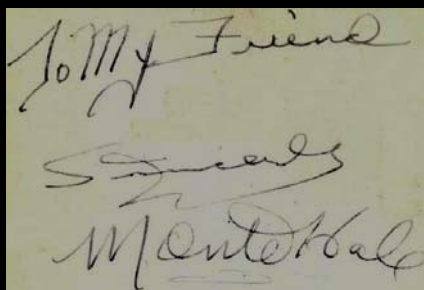 To My Friend
Sincerely
Monte Hale